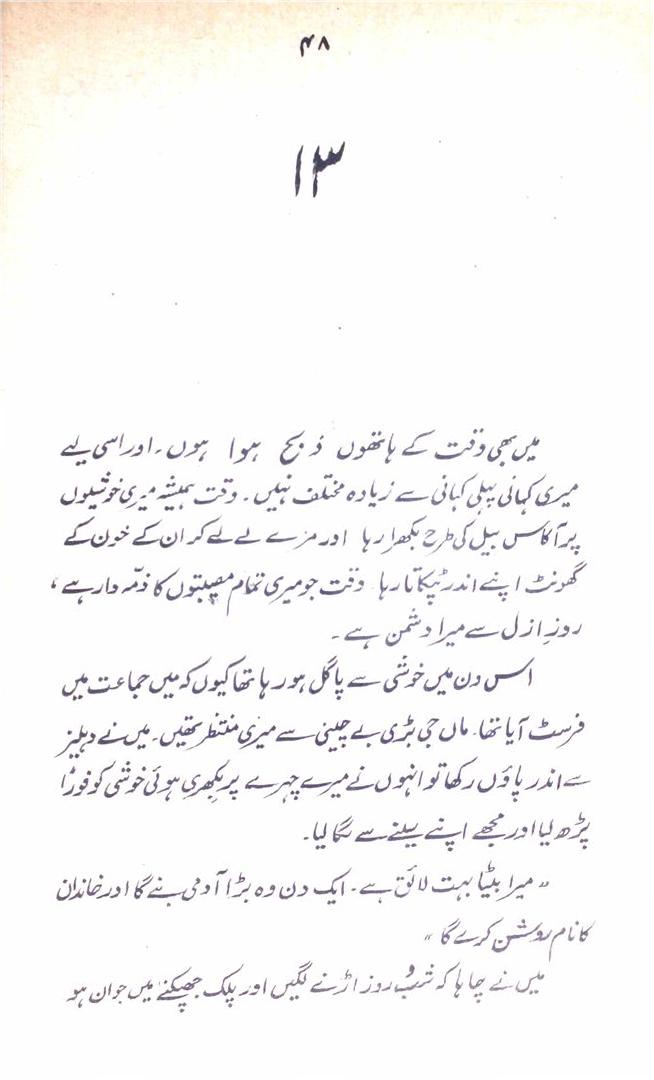 ۴۸
۱۳
میں بھی وقت کے ہاتھوں ذبح ہوا ہوں۔ اور اسی لیے
میری کہانی پہلی کہانی سے زیادہ مختلف نہیں۔ وقت ہمیشہ میری خوشیوں
پر آکاس بیل کی طرح بکھرا رہا اور مزے لے لے کر ان کے خون کے
گھونٹ اپنے اندر ٹپکاتا رہا۔ وقت جو میری تمام مصیبتوں کا ذمّہ دار ہے،
روزِ ازل سے میرا دشمن ہے۔
اس دن میں خوشی سے پاگل ہو رہا تھا کیوں کہ میں جماعت میں
فرسٹ آیا تھا۔ ماں جی بڑی بے چینی سے میری منتظر تھیں۔ میں نے دہلیز
سے اندر پاؤں رکھا تو انہوں نے میرے چہرے پر بکھری ہوئی خوشی کو فوراً
پڑھ لیا اور مجھے اپنے سینے سے لگا لیا۔
"میرا بیٹا بہت لائق ہے۔ ایک دن وہ بڑا آدمی بنے گا اور خاندان
کا نام روشن کرے گا"
میں نے چاہا کہ شب و روز اڑنے لگیں اور پلک جھپکنے میں جوان ہو